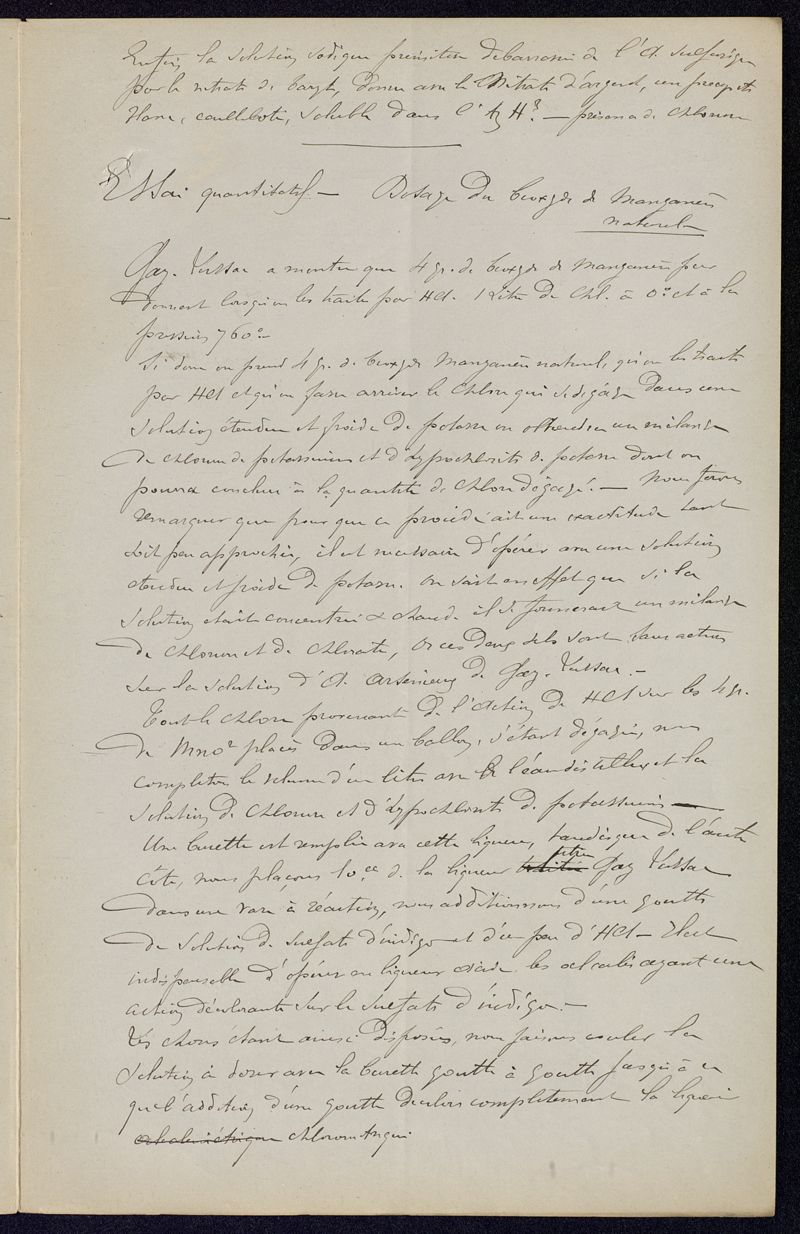 Enfin la solution sodique primitive debarrassée de l'A. sulfurique
par le nitrate de baryte, donne avec le Nitrate d'argent, un precipité
blanc, cailleboté, soluble dans l'Az H³. — présence de Chlorure
Essai quantitatif — Dosage du bioxyde de Manganèse
naturel
Gay-Lussac a montré que 4 gr. de bioxyde de Manganèse pur
donnent lorsqu'on les traite par HCl. 1 litre de Chl. à 0° et à la
pression 760.—
Si donc on prend 4 gr. de bioxyde Manganèse naturel, qu'on les traite
par HCl et qu'on fasse arriver le Chlore qui se dégage dans une
solution étendue et froide de potasse on obtiendra un mélange
de chlorure de potassium et d'hypochlorite de potasse dont on
pourra conclure à la quantité de Chlore dégagé. — Nous ferons
remarquer que pour que ce procédé ait une exactitude tant
soit peu approchée, il est necessaire d'opérer avec une solution
etendue et froide de potasse. On sait en effet que si la
solution était concentrée & chaude il se formerait un mélange
de chlorure et de chlorate, or ces deux sels sont sans action
sur la solution d'A. arsenieux de Gay-Lussac. —
Tout le chlore provenant de l'action de HCl sur les 4 gr.
de MnO² placés dans un ballon, s'étant dégagé, nous
completons le volume d'un litre avec de l'eau distillée et la
solution de chlorure et d'hypochlorite de potassium —
Une burette est remplie avec cette liqueur, tandis que de l'autre
côté, nous plaçons 10 cc de la liqueur titrée Gay Lussac
dans un vase à réaction, nous additionnons d'une goutte
de solution de sulfate d'indigo et d'un peu d'HCl — Il est
indispensable d'opérer en liqueur acide les alcalis ayant une
action décolorante sur le sulfate d'indigo. —
Les choses étant ainsi disposées, nous faisons couler la
solution à doser avec la burette goutte à goutte jusqu'à ce
que l'addition d'une goutte decolore completement la liqueur
alcalimétrique chlorométrique